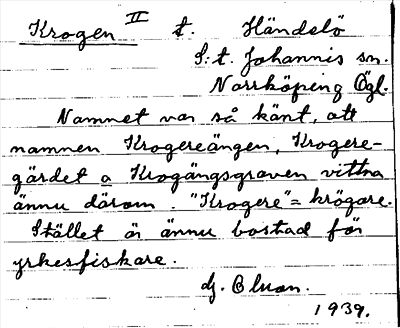 Krogen II t. Händelö
S:t. Johannis sn.
Norrköping Ögl.
Namnet var så känt, att
namnen Krogereängen, Krogere-
gärdet o Krogängsgraven vittna
ännu därom. "Krogere" = krögare.
Stället är ännu bostad för
yrkesfiskare.
1939.